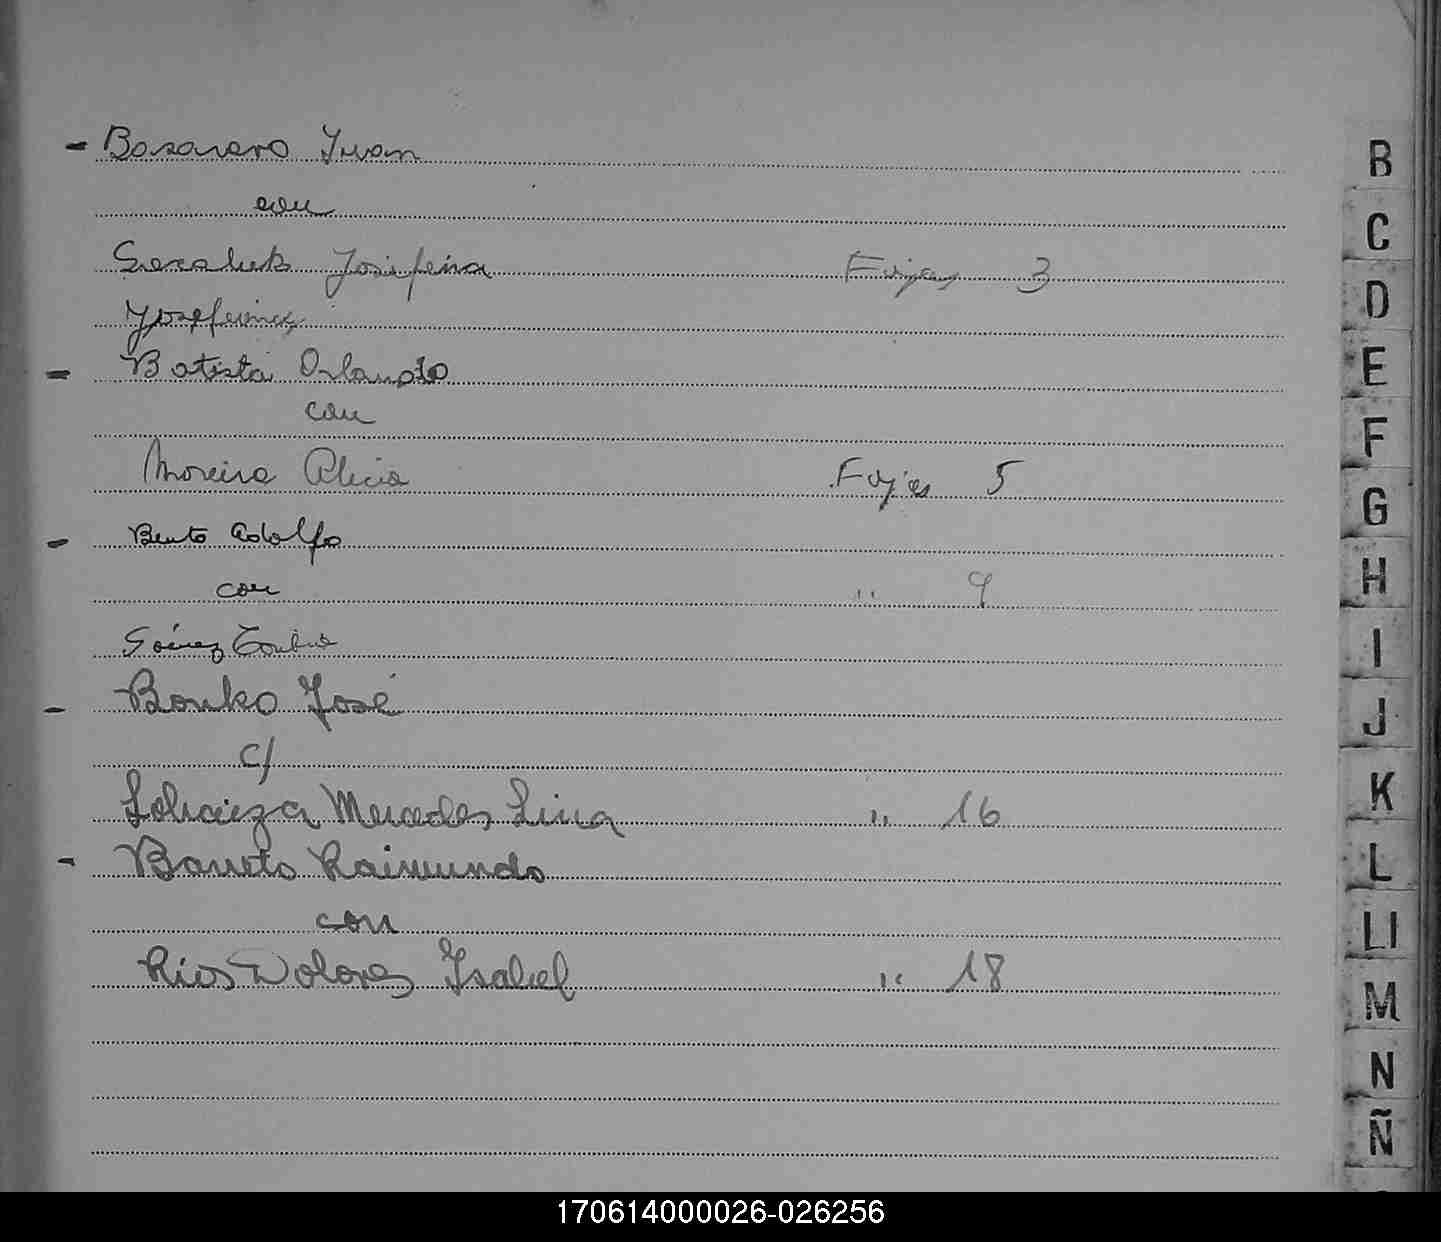 - Basarero Juan
con
Josifeina Fojas 3
Josefina
- Batista Orlando
con
Moreira Alicia Fojas 5
- Bento Adolfo
con " 9
Gómez
- Bonko José
c/
Mercedes Lina " 16
- Barreto Raimundo
con
Rios Dolores Isabel " 18
B
C
D
E
F
G
H
I
J
K
L
Ll
M
N
Ñ
170614000026-026256